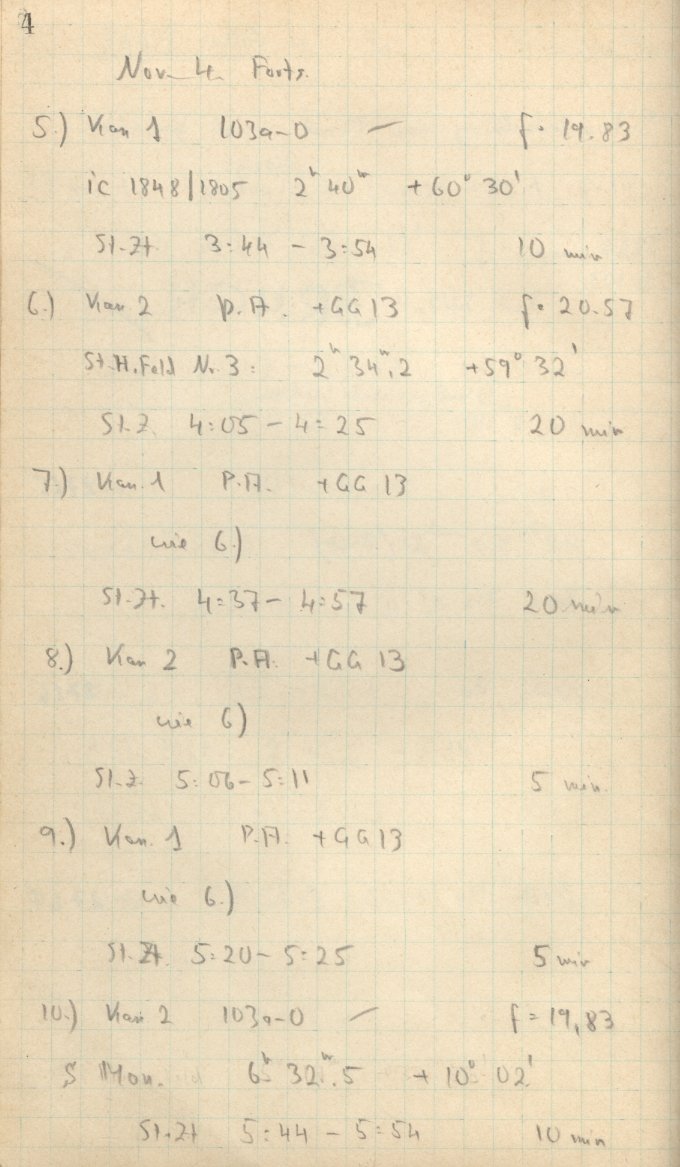 4
Nov. 4. Forts.
5.) Kam 1 103a-O — f = 19.83
ic 1848/1805 2ʰ 40ᵐ +60° 30'
St.Zt 3:44 - 3:54 10 min
6.) Kam 2 P.A. +GG13 f = 20.57
St.H.Feld Nr. 3: 2ʰ 34ᵐ.2 +59° 32'
St.Z. 4:05 - 4:25 20 min
7.) Kam. 1 P.A. +GG 13
wie 6.)
St.Zt. 4:37 - 4:57 20 min
8.) Kam 2 P.A. +GG 13
wie 6)
St.Z. 5:06 - 5:11 5 min.
9.) Kam. 1 P.A. +GG13
wie 6.)
St.Zt. 5:20 - 5:25 5 min
10.) Kam 2 103a-O — f = 19,83
S Mon. 6ʰ 32ᵐ.5 +10° 02'
St.Zt 5:44 - 5:54 10 min